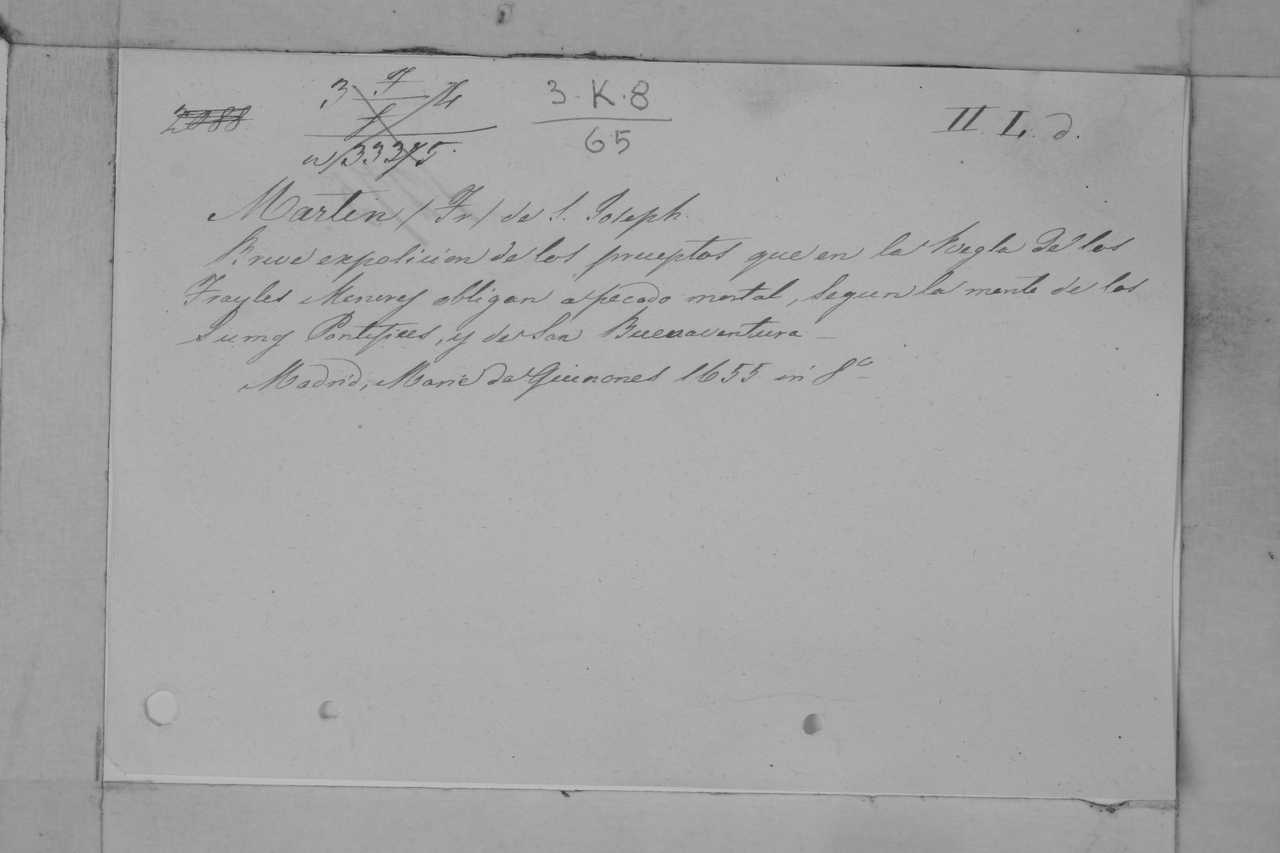 2088
3 7 4
3·K·8
65
II L. d.
Martin (Fr) de S. Joseph.
Breve exposicion de los preceptos que en la Regla de los
Frayles Menores obligan a pecado mortal, segun la mente de los
Sumos Pontifices, y de San Buenaventura —
Madrid, Marie de Quinones 1655 in 8º